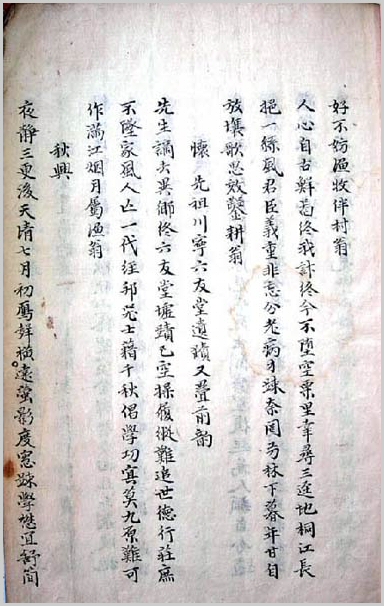 好不妨漁牧伴村翁
人心自古鮮 終我計終今不墮空栗里幸尋三逕地桐江長
挹一綠風君臣義重非忘分老病才疎奈 林下暮年甘自
放壤歌思效鑿耕翁
懷 先祖川寧六友堂遺蹟又疊前韵
先生謫去異鄉終六友堂墟蹟已空操履縱難追世德行莊庶
不墜家風人亡一代經邦 士藉千秋倡學功寞莫九原難可
作滿江烟月屬漁翁
秋興
夜靜三更後天清七月初鴈聲橫 遠螢影度窓踈學 宜舒簡